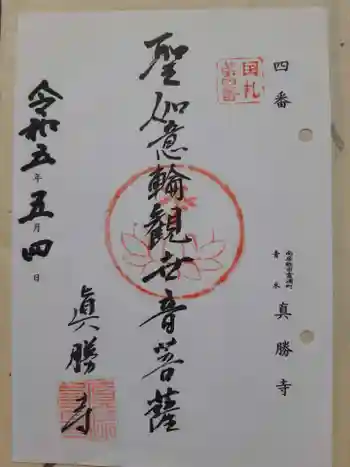 四番
青木 真勝寺
国札
第四番
聖如意輪觀世音菩薩
眞勝寺
令和五年五月四日